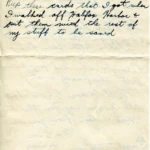 Keep these cards that I got when
I walked off Halifax Harbor &
put them with the rest of
my stuff to be saved